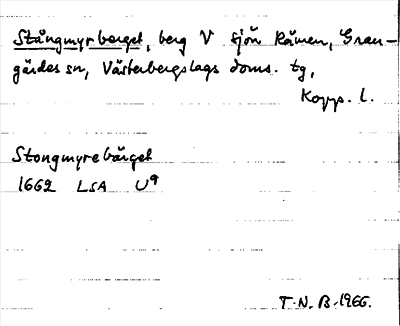 Stångmyrberget, berg V sjön Råmen, Gran-
gärdes sn, Västerbergslags doms. tg,
Kopp. l.
Stongmyrebärget
1662 LSA U9
T.N.B. 1966.